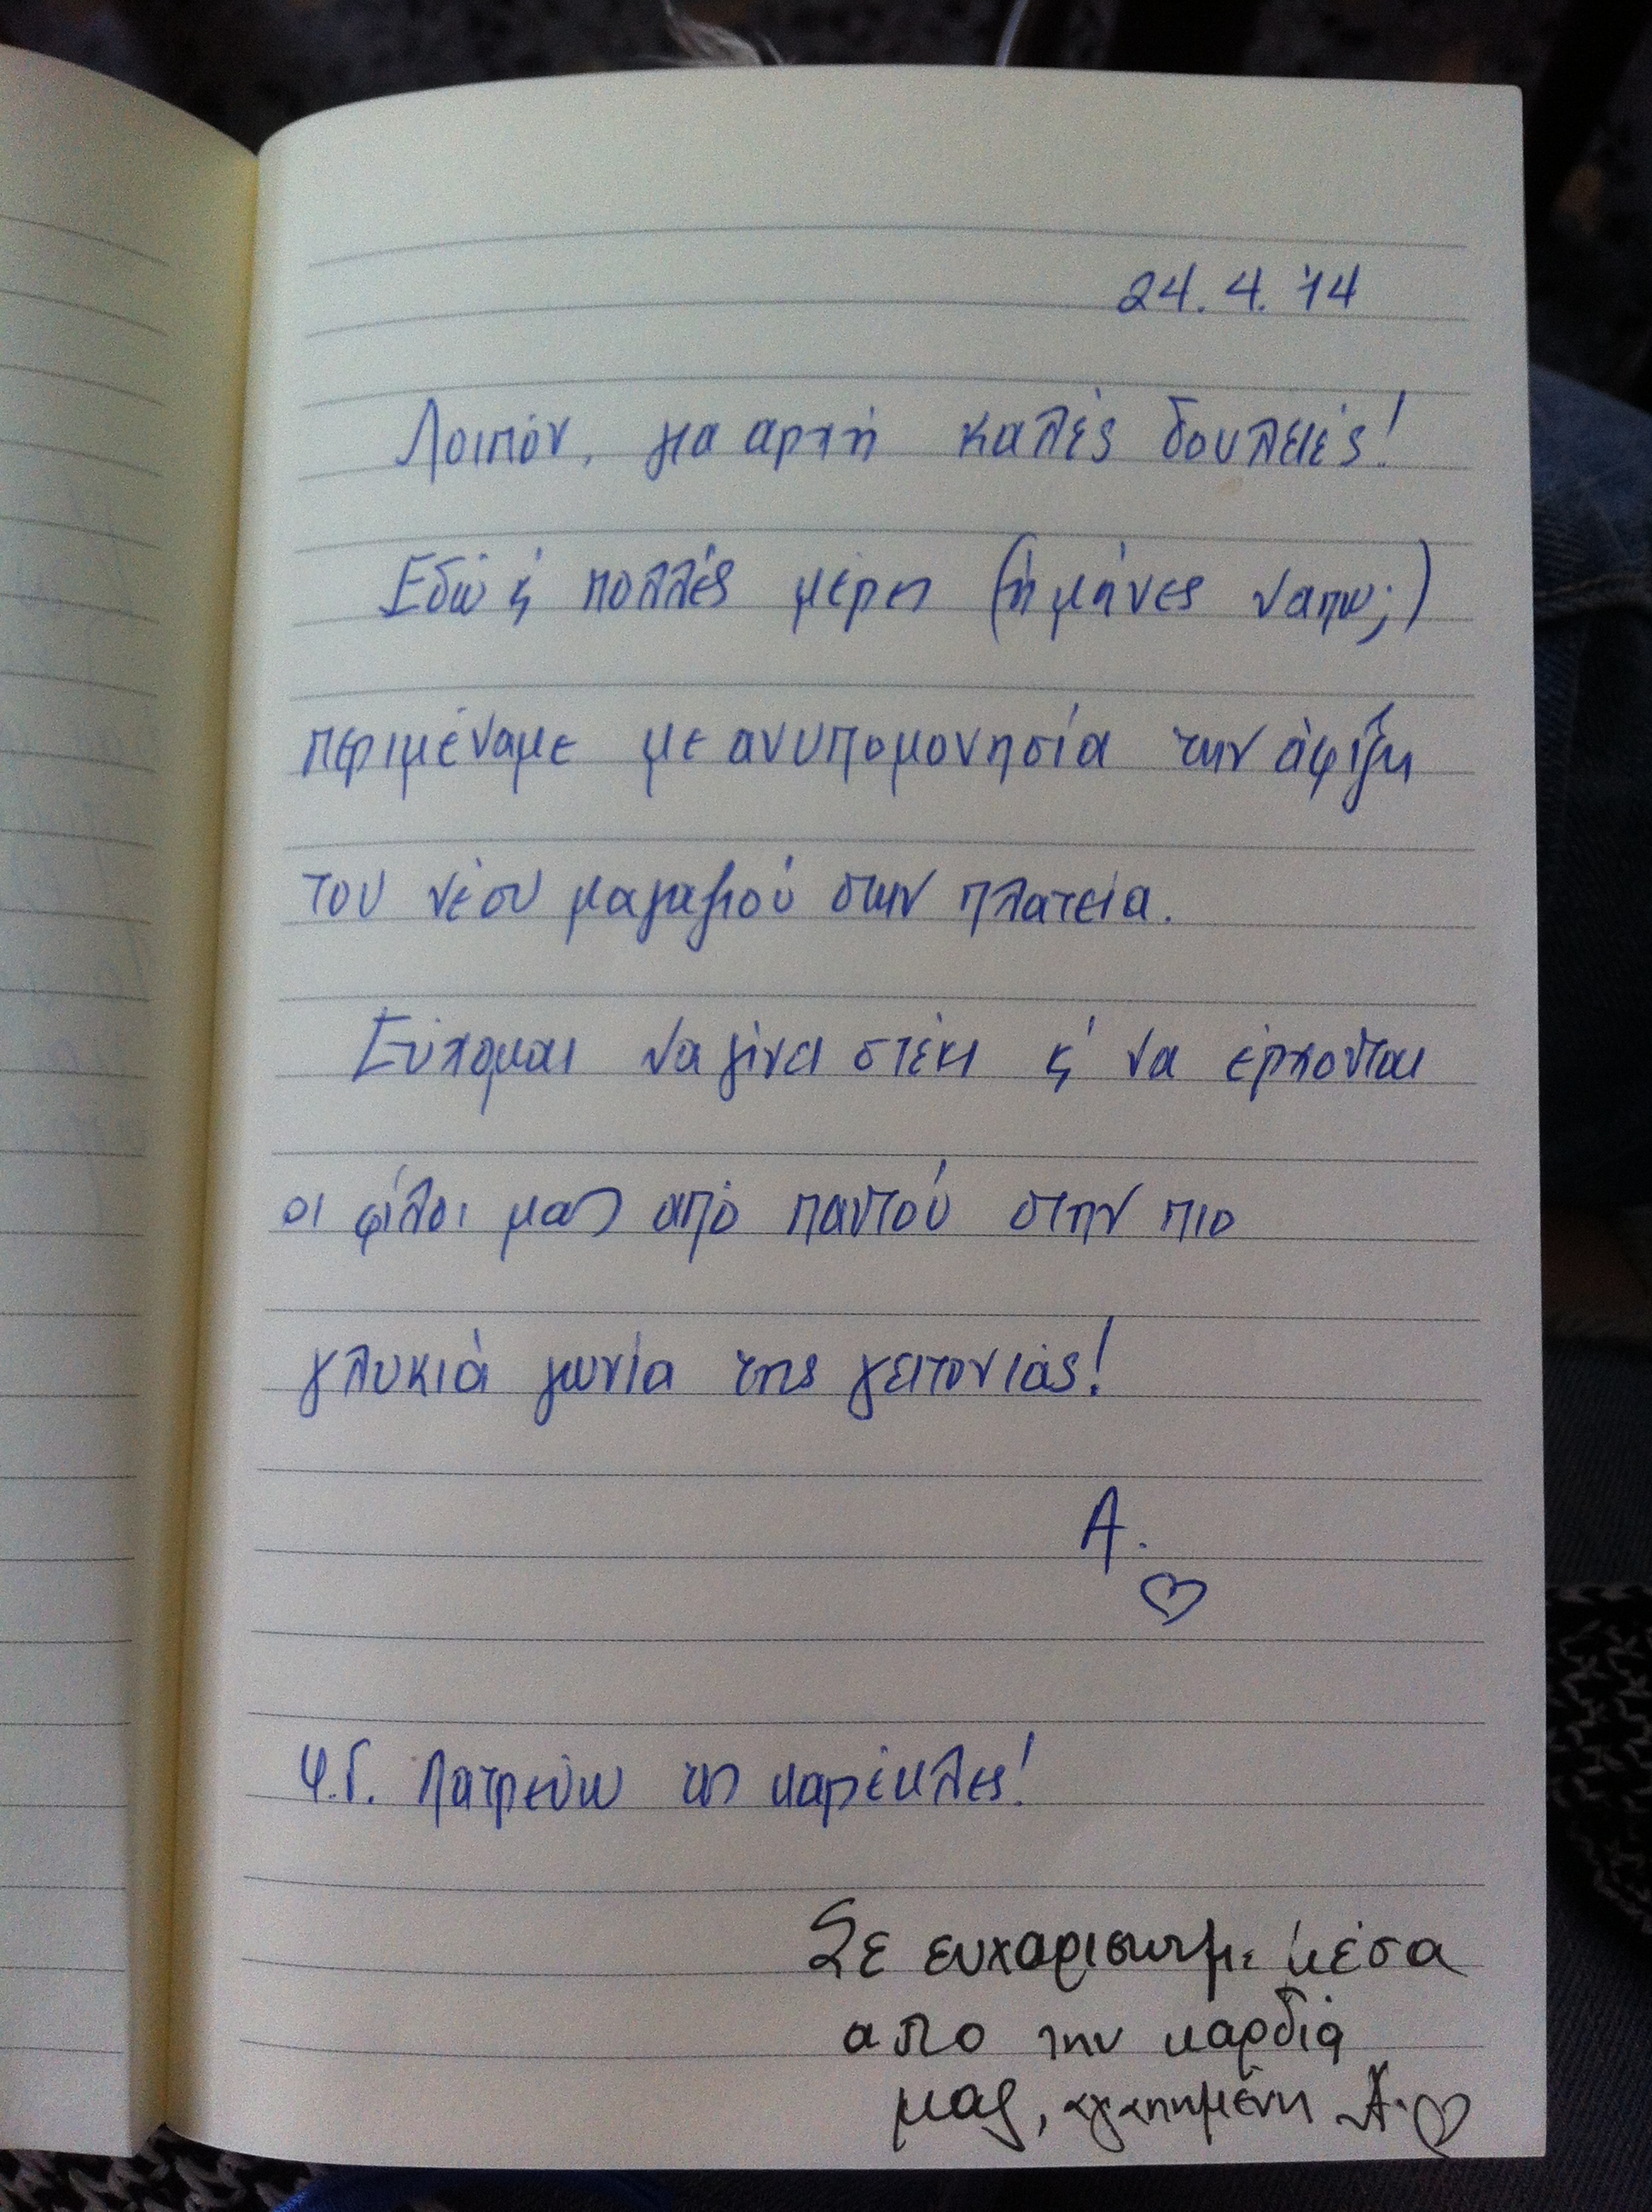 24.4.'14
Λοιπόν, για αρχή καλές δουλειές!
Εδώ κ' πολλές μέρες (ή μήνες να πω;)
περιμέναμε με ανυπομονησία την άφιξη
του νέου μαγαζιού στην πλατεία.
Εύχομαι να γίνει στέκι κ' να έρχονται
οι φίλοι μας από παντού στην πιο
γλυκιά γωνία της γειτονιάς!
Α.
Υ.Γ. Λατρεύω τις καρέκλες!
Σε ευχαριστούμε μέσα
απο την καρδιά
μας, αγαπημένη Α. ♡